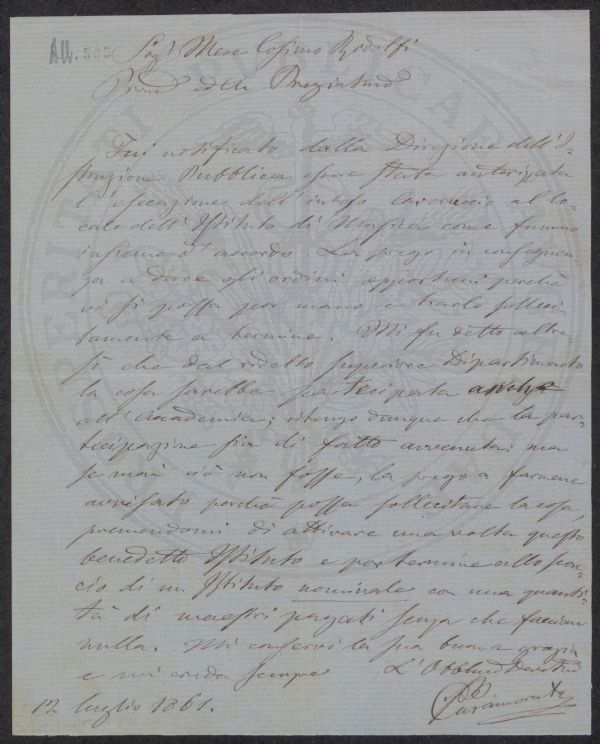 All. 505
Sig.r Mese Cosimo Ridolfi
Pne ed A. Pregiatmo
Fui notificato dalla Direzione dell'I-
struzione Pubblica essere stata autorizzata
l'esecuzione dell'intero lavoruccio al lo-
cale dell'Istituto di Musica come fummo
insieme d'accordo. La prego in consequen-
za a dare gli ordini opportuni perchè
vi si possa por mano e trarlo solleci-
tamente a termine. Mi fu detto altre-
sì che dal ridetto superiore Dipartimento
la cosa sarebbe partecipata anche
all'Accademia; ritengo dunque che la par-
tecipazione sia di fatto avvenuta; ma
se mai ciò non fosse, la prego a farmene
avvisato perchè possa sollecitare la cosa,
premendomi di attivare una volta questo
benedetto Istituto e por termine allo scon-
cio di un Istituto nominale con una quanti-
tà di maestri pagati senza che faccian
nulla. Mi conservi la sua buona grazia
e mi creda sempre L'Obblmo Devmo
12 luglio 1861. Casamorata